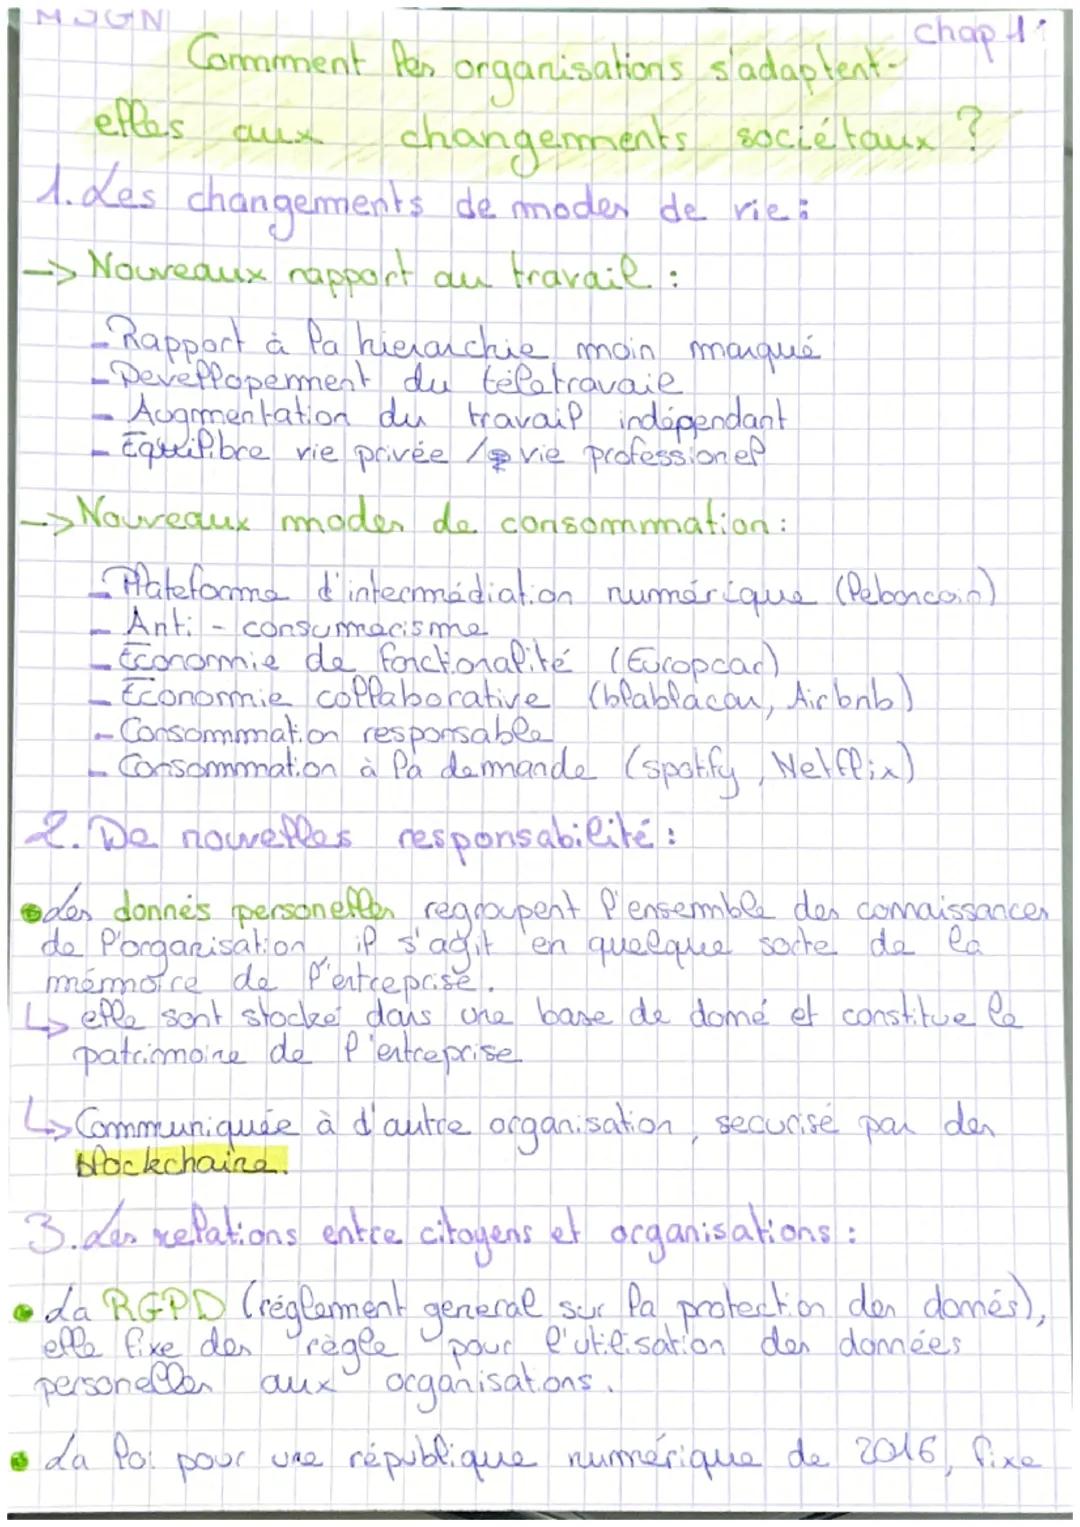 MSGN
chap 1:
Comment les organisations s'adaptent-
elles aux changements sociétaux ?
1. Les changements de modes de vie :
-> Nouveaux rapport au travail :
- Rapport à la hierarchie moin marqué
- Devellopement du télétravail
- Augmentation du travail indépendant
- Équilibre vie privée / vie professionel
-> Nouveaux modes de consommation :
- Plateforme d'intermédiation numérique (leboncoin)
- Anti - consumerisme
- Économie de fonctionalité (Europcar)
- Économie collaborative (blablacar, Airbnb)
- Consommation responsable
- Consommation à la demande (spotify, Netflix)
2. De nouvelles responsabilité :
• Les donnés personelles regroupent l'ensemble des connaissances
de l'organisation, il s'agit en quelque sorte de la
mémoire de l'entreprise.
↳ elle sont stocké dans une base de donné et constitue le
patrimoine de l'entreprise
↳ Communiquée à d'autre organisation, securisé par des
blockchaine.
3. Les relations entre citoyens et organisations :
• La RGPD (réglement general sur la protection des donnés),
elle fixe des règle pour l'utilisation des données
personelles aux organisations.
• La loi pour une république numérique de 2016, fixe